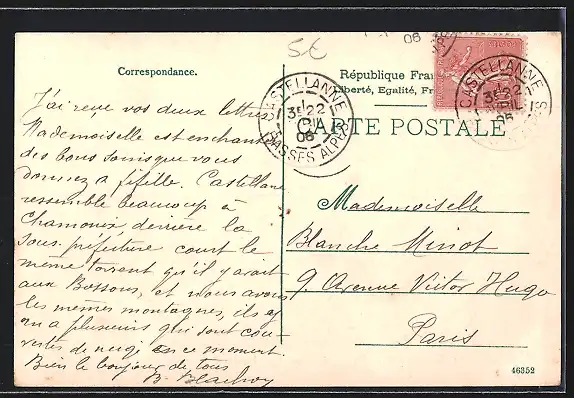 5€
06
Correspondance.
République Fra
Liberté, Egalité, Fr
CARTE POSTALE
CASTELLANNE
3E 22
AVRIL
06
BASSES ALPES
CASTELLANNE
3E 22
06
J'ai reçu vos deux lettres
Mademoiselle est enchantée
des bons soins que vous
donnez a fifille. Castellane
ressemble beaucoup à
Chamonix derriere la
sous-préfecture court le
même torrent qu'il y avait
aux Bossons, et nous avons
les mêmes montagnes, il y
en a plusieurs qui sont cou-
vertes de neige en ce moment.
Bien le bonjour de tous
B.
Mademoiselle
Blanche Minot
9 Avenue Victor Hugo
Paris
46352